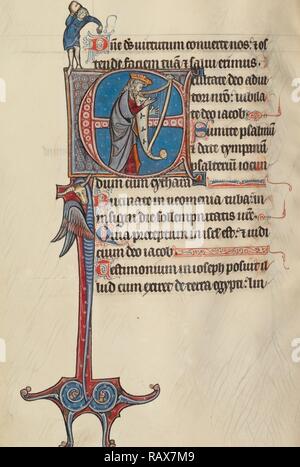 Dne ds uirtutum conuerte nos: & os
tende faciem tuam & salui erimus
Exultate deo adiu
tori nostro: iubila
te deo iacob
Sumite psalmum
& date tympanum
psalterium iocun
dum cum cythara
Bucinate in neomenia tuba: in
insigni die sollempnitatis
Quia preceptum in isrl est: & iudi
cium deo iacob
Testimonium in ioseph posuit il
lud cum exiret de terra egypti: lin
alamy
Image ID: RAX7M9
www.alamy.com